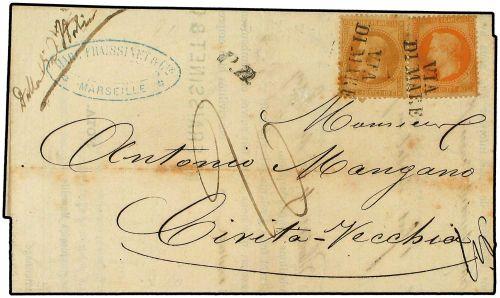 FRAISSINET & Cie
MARSEILLE
P.D.
VIA
DI MARE
VIA
DI MARE
Monsieur
Antonio Mangano
Civita-Vecchia